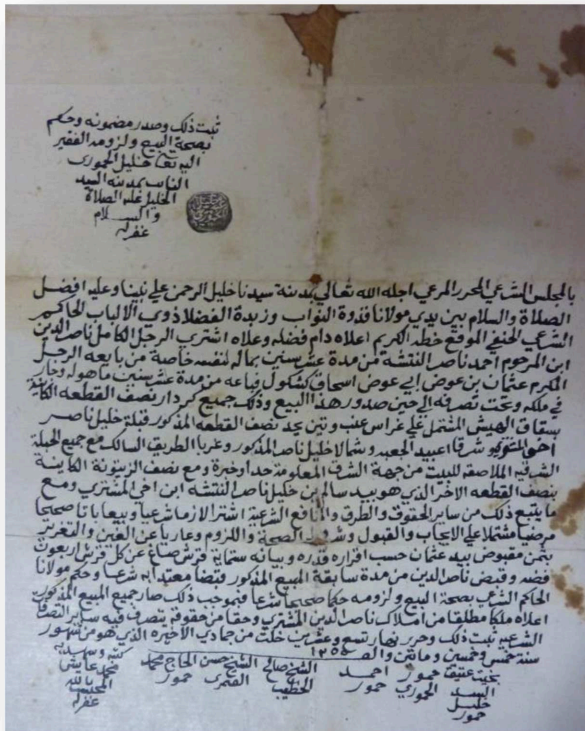 ثبت ذلك وصدر مضمونه وحكم
بصحة البيع ولزومه الفقير
اليه تعالى خليل الحموري
النائب بمدينة السيد
الخليل عليه الصلاة
والسلام
غفر له
بالمجلس الشرعي المحرر المرعي اجله الله تعالى بمدينة سيدنا خليل الرحمن على نبينا وعليه افضل
الصلاة والسلام بين يدي مولانا قدوة النواب وزبدة الفضلا ذوي الالباب الحاكم
الشرعي الحنفي الموقع خطه الكريم اعلاه دام فضله وعلاه اشترى الرجل الكامل ناصر الدين
ابن المرحوم احمد ناصر النتشه من مدة عشر سنين بماله لنفسه خاصة من بايعه الرجل
المكرم عثمان بن عوض ابي عوض اسحاق كشكول فباعه من مدة عشر سنين ما هو له وجار
في ملكه وتحت تصرفه الى حين صدور هذا البيع وذلك جميع كردار نصف القطعه الكاينة
بسقاف الهيش المشتمل على غراس عنب وتين يحد نصف القطعه المذكور قبلة خليل ناصر
اخو المشتري وشرقا عبيد الجعبه وشمالا خليل ناصر المذكور وغربا الطريق السالك مع جميع الحبلة
الشرقيه الملاصقه للبيت من جهة الشرق المعلومة حدا وخبرة ومع نصف الزيتونة الكاينة
بنصف القطعه الاخر الذي هو بيد سالم بن خليل ناصر النتشه ابن اخي المشتري ومع
ما يتبع ذلك من ساير الحقوق والطرق والمنافع الشرعية اشترا لازما شرعيا وبيعا باتا صحيحا
مرضيا مشتملا على الايجاب والقبول وشروط الصحة واللزوم وعاريا عن الغبن والتغرير
بثمن مقبوض بيد عثمان حسب اقراره قدره وبيانه ستماية قرش صاغ عن كل قرش اربعون
فضه وقبض ناصر الدين من مدة سابقة المبيع المذكور قبضا معتدا به شرعا وحكم مولانا
الحاكم الشرعي بصحة البيع ولزومه حكما صحيحا شرعيا فبموجب ذلك صار جميع المبيع المذكور
اعلاه ملكا مطلقا من املاك ناصر الدين المشتري وحقا من حقوقه يتصرف فيه ساير التصرفات
الشرعيه ثبت ذلك وحرر نهار تسع وعشرين خلت من جمادي الاخيرة الذي هو من شهور
سنة خمس وخمسين وماتين والف ١٢٥٥
السيد خليل حمور
حمور الحموري
احمد حمور
الشيخ صالح الخطيب
الشيخ حسن القصري
الحاج محمد حمور
كتبه وشهد به
محمد
غفر له